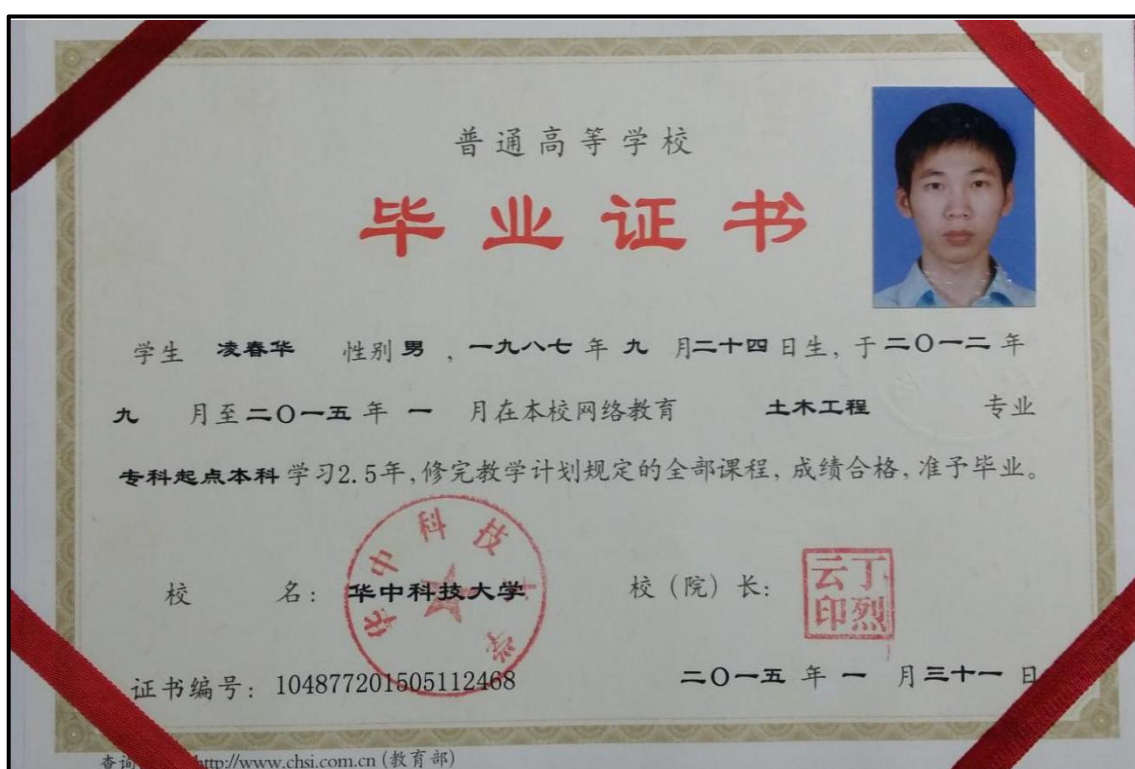 普通高等学校
毕业证书
学生 凌春华 性别 男 ，一九八七 年 九 月二十四 日生，于二〇一二 年
九 月至二〇一五 年 一 月在本校网络教育 土木工程 专业
专科起点本科 学习2.5年，修完教学计划规定的全部课程，成绩合格，准予毕业。
华中科技大学
校 名： 华中科技大学 校（院）长： 丁烈云印
证书编号： 104877201505112468 二〇一五 年 一 月三十一 日
查询 http://www.chsi.com.cn (教育部)